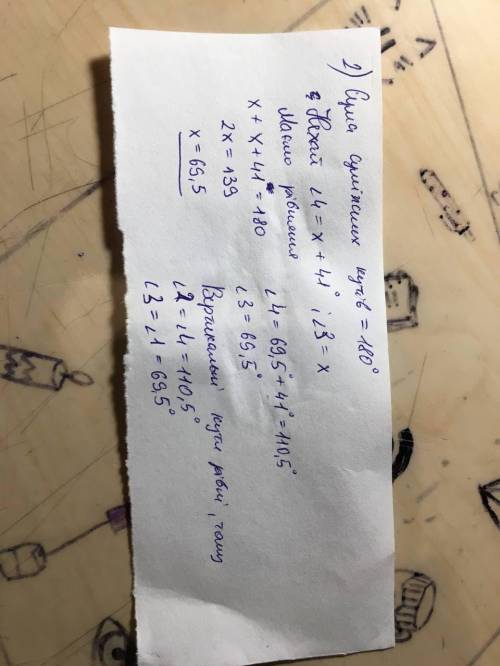 2) Сума суміжних кутів = 180°
Нехай ∠4 = x + 41° ; ∠3 = x
Маємо рівняння
x + x + 41° = 180
2x = 139
x = 69,5
∠4 = 69,5° + 41° = 110,5°
∠3 = 69,5°
Вертикальні кути рівні, тому
∠2 = ∠4 = 110,5°
∠3 = ∠1 = 69,5°